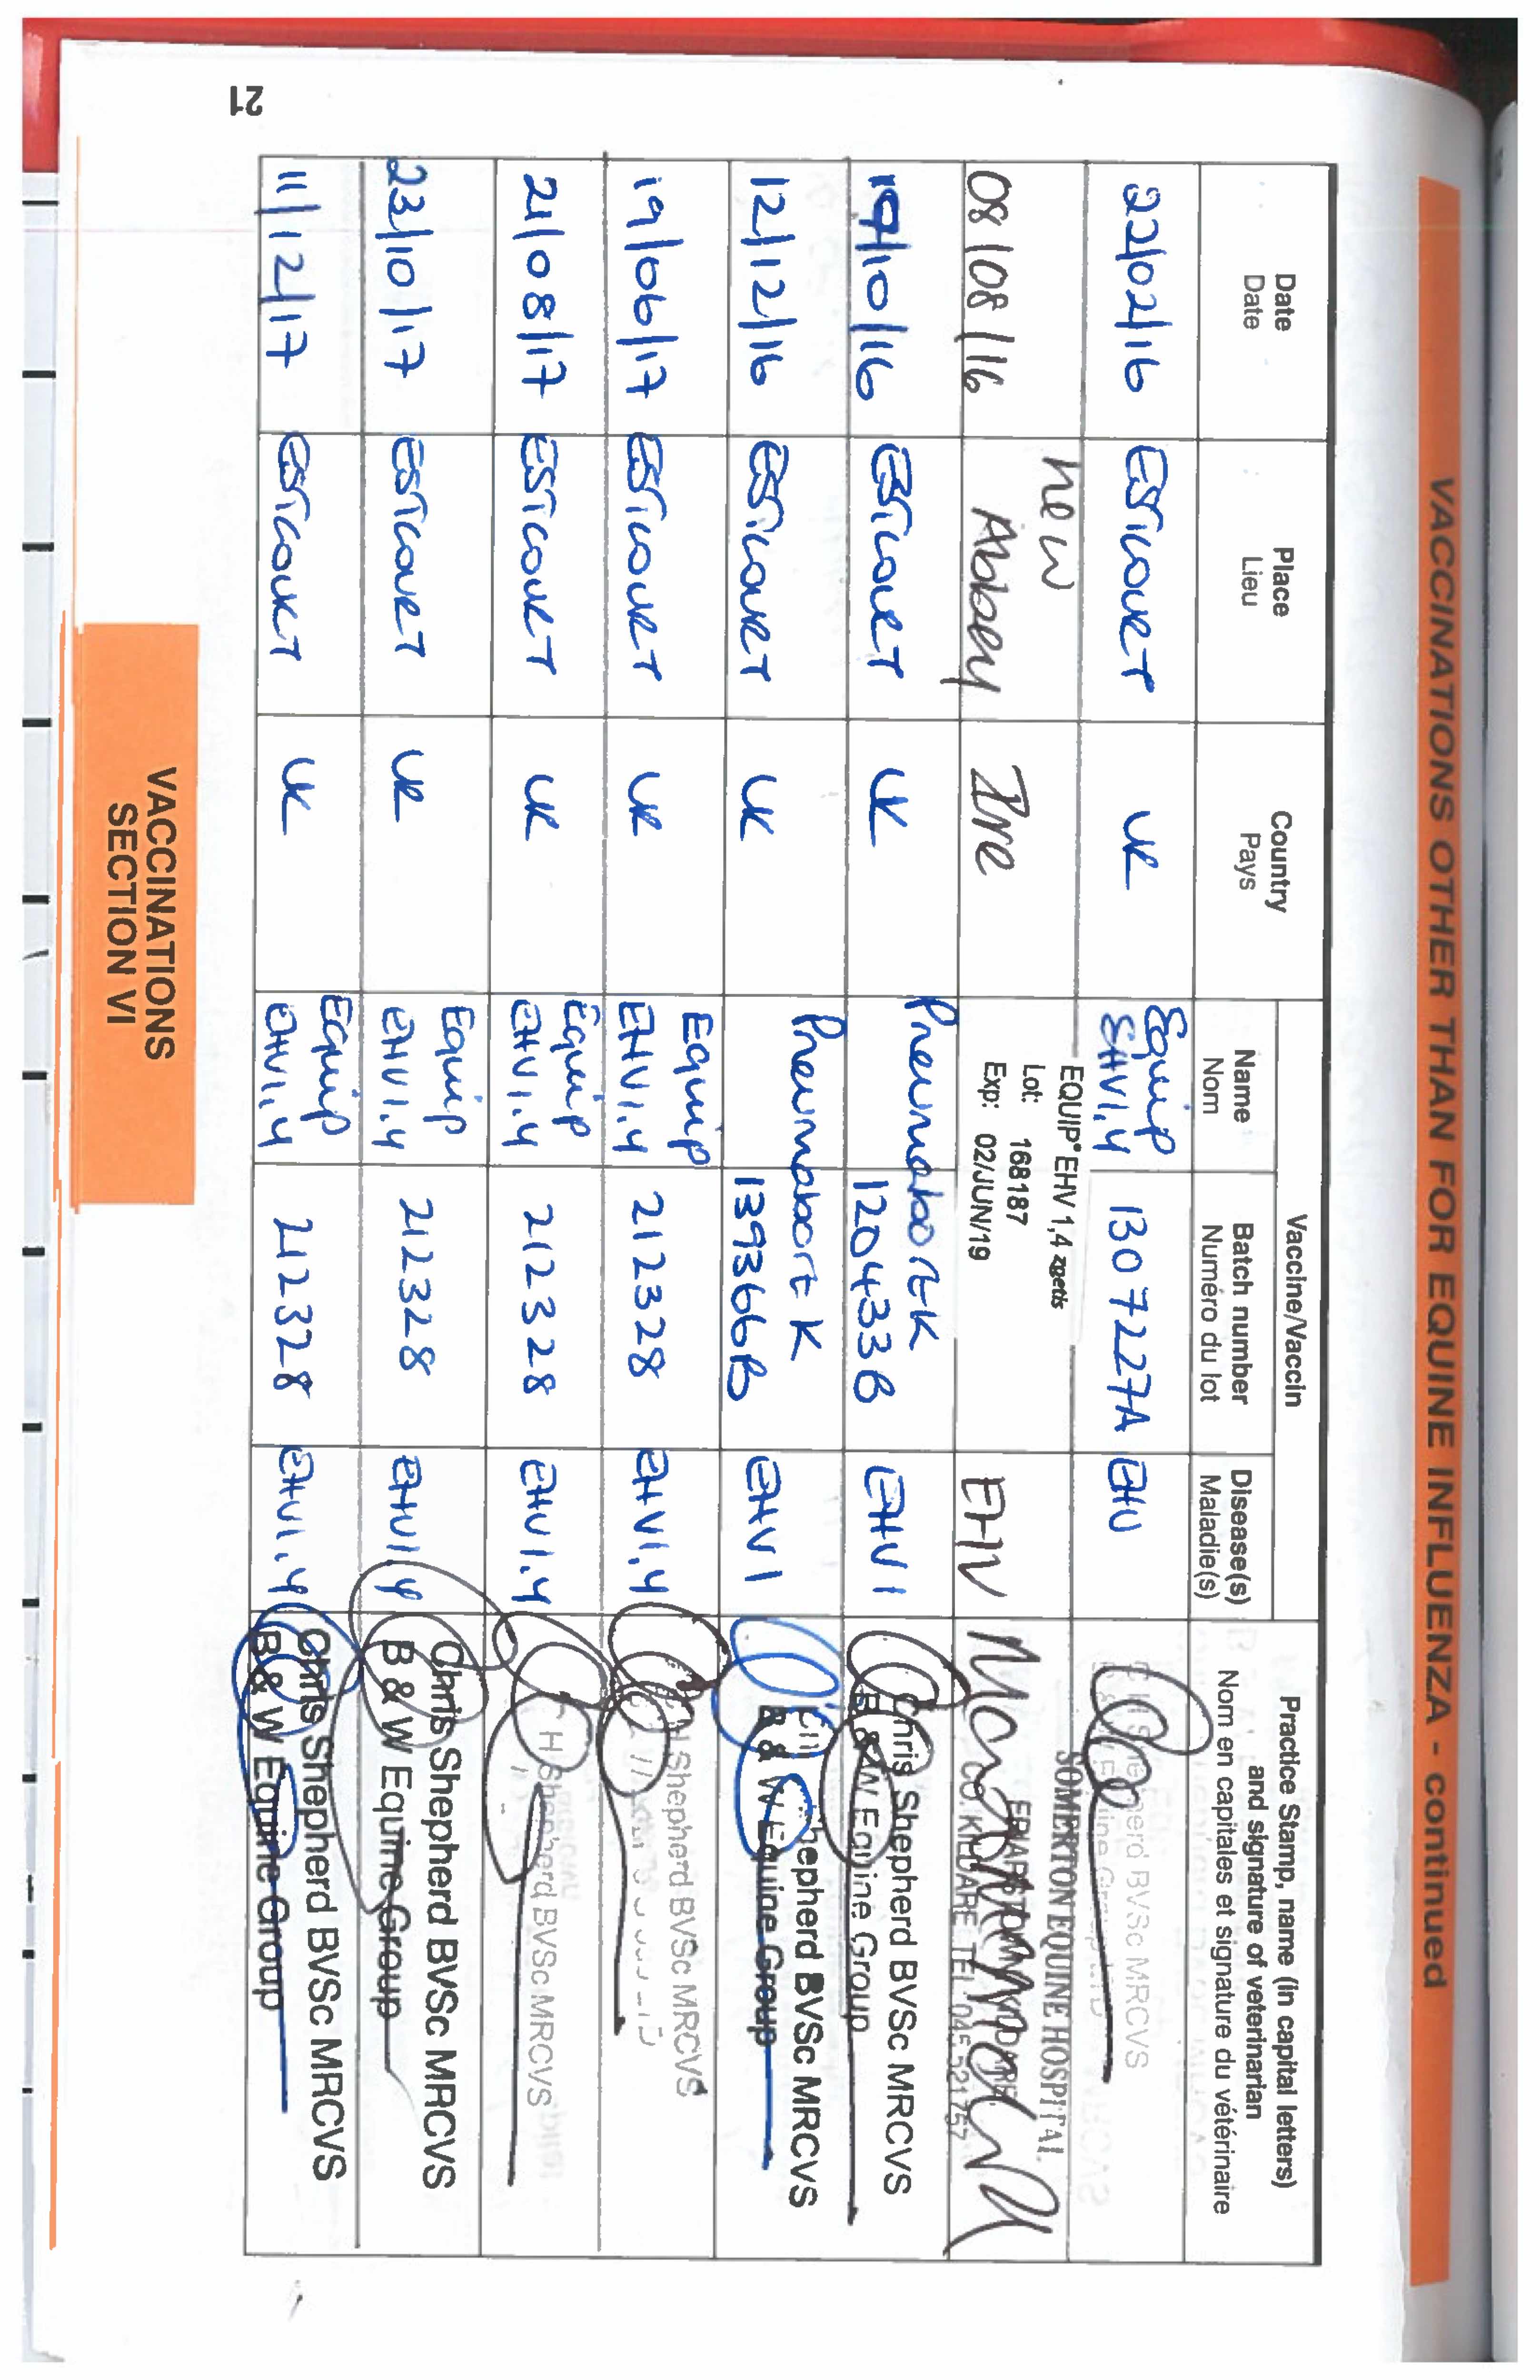 VACCINATIONS OTHER THAN FOR EQUINE INFLUENZA - continued
Date
Date
Place
Lieu
Country
Pays
Vaccine/Vaccin
Name
Nom
Batch number
Numéro du lot
Disease(s)
Maladie(s)
Practice Stamp, name (in capital letters)
and signature of veterinarian
Nom en capitales et signature du vétérinaire
22/02/16 ESTCOURT UK Equip
EHV1,4 1307227A EHV
Shepherd BVSc MRCVS
08/08/16 New
Abbey Ire
EQUIP® EHV 1,4 zoetis
Lot: 168187
Exp: 02/JUN/19
EHV
SOMERTON EQUINE HOSPITAL
CO. KILDARE TEL: 045 521757
10/16 ESTCOURT UK Pneumabort K
120433B EHV1
Chris Shepherd BVSc MRCVS
B & W Equine Group
12/12/16 ESTCOURT UK Pneumabort K
139366B EHV1
Shepherd BVSc MRCVS
B & W Equine Group
19/06/17 ESTCOURT UK Equip
EHV1,4 212328 EHV1,4
Shepherd BVSc MRCVS
21/08/17 ESTCOURT UK Equip
EHV1,4 212328 EHV1,4
C H Shepherd BVSc MRCVS
23/10/17 ESTCOURT UK Equip
EHV1,4 212328 EHV1,4
Chris Shepherd BVSc MRCVS
B & W Equine Group
11/12/17 ESTCOURT UK Equip
EHV1,4 212328 EHV1,4
Chris Shepherd BVSc MRCVS
B & W Equine Group
VACCINATIONS
SECTION VI
21